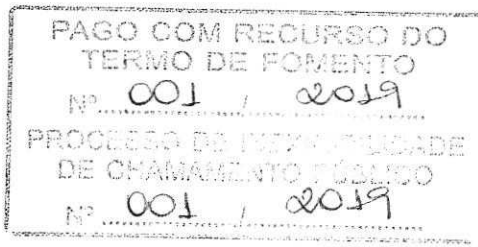 PAGO COM RECURSO DO
TERMO DE FOMENTO
Nº 001 / 2019
PROCESSO DE INEXIGIBILIDADE
DE CHAMAMENTO PÚBLICO
Nº 001 / 2019